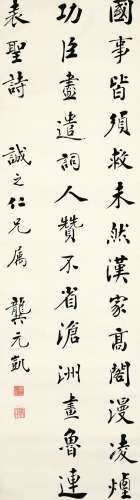 國事皆須救未然漢家高閣漫凌焯
功臣盡遣詞人贊不省滄洲畫魯連
袁聖詩
誠之仁兄属 龔元凱